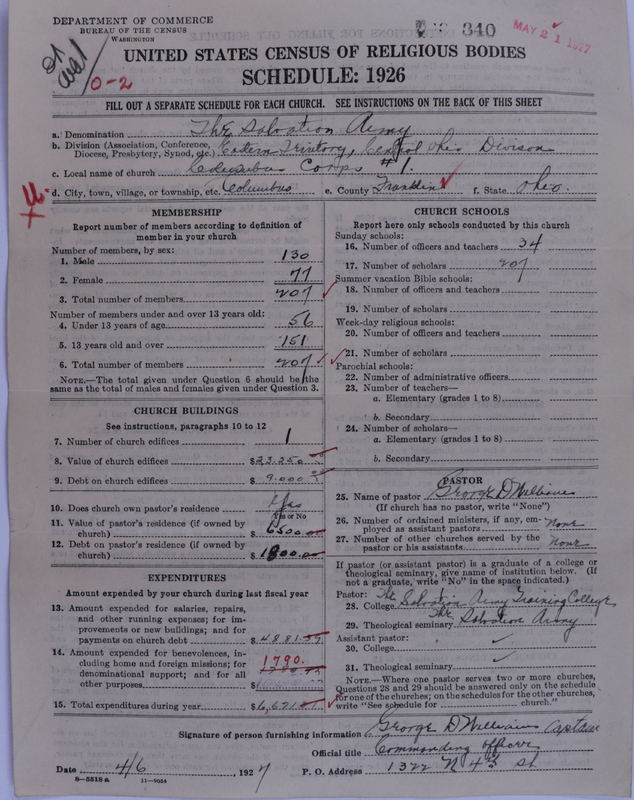 DEPARTMENT OF COMMERCE
BUREAU OF THE CENSUS
WASHINGTON
340
MAY 21 1927
0-2
UNITED STATES CENSUS OF RELIGIOUS BODIES
SCHEDULE: 1926
FILL OUT A SEPARATE SCHEDULE FOR EACH CHURCH. SEE INSTRUCTIONS ON THE BACK OF THIS SHEET
a. Denomination The Salvation Army
b. Division (Association, Conference, Diocese, Presbytery, Synod, etc.) Eastern Territory, Central Ohio Division
c. Local name of church Columbus Corps #1.
d. City, town, village, or township, etc. Columbus e. County Franklin f. State Ohio.
MEMBERSHIP
Report number of members according to definition of member in your church
Number of members, by sex:
1. Male 130
2. Female 77
3. Total number of members 207
Number of members under and over 13 years old:
4. Under 13 years of age 56
5. 13 years old and over 151
6. Total number of members 207
NOTE.—The total given under Question 6 should be the same as the total of males and females given under Question 3.
CHURCH BUILDINGS
See instructions, paragraphs 10 to 12
7. Number of church edifices 1
8. Value of church edifices $23.250
9. Debt on church edifices $9.000
10. Does church own pastor's residence Yes
Yes or No
11. Value of pastor's residence (if owned by church) $6500.00
12. Debt on pastor's residence (if owned by church) $1800.00
EXPENDITURES
Amount expended by your church during last fiscal year
13. Amount expended for salaries, repairs, and other running expenses; for improvements or new buildings; and for payments on church debt $4881.
14. Amount expended for benevolences, including home and foreign missions; for denominational support; and for all other purposes 1790. $
15. Total expenditures during year $6,671
CHURCH SCHOOLS
Report here only schools conducted by this church
Sunday schools:
16. Number of officers and teachers 34
17. Number of scholars 207
Summer vacation Bible schools:
18. Number of officers and teachers
19. Number of scholars
Week-day religious schools:
20. Number of officers and teachers
21. Number of scholars
Parochial schools:
22. Number of administrative officers
23. Number of teachers—
a. Elementary (grades 1 to 8)
b. Secondary
24. Number of scholars—
a. Elementary (grades 1 to 8)
b. Secondary
PASTOR
25. Name of pastor George D Williams
(If church has no pastor, write "None")
26. Number of ordained ministers, if any, employed as assistant pastors none
27. Number of other churches served by the pastor or his assistants None
If pastor (or assistant pastor) is a graduate of a college or theological seminary, give name of institution below. (If not a graduate, write "No" in the space indicated.)
Pastor:
28. College The Salvation Army Training College
29. Theological seminary The Salvation Army
Assistant pastor:
30. College
31. Theological seminary
NOTE.—Where one pastor serves two or more churches, Questions 28 and 29 should be answered only on the schedule for one of the churches; on the schedules for the other churches, write "See schedule for church."
Signature of person furnishing information George D Williams Captain
Official title Commanding Officer
Date 4/6, 1927 P. O. Address 1322 N 4th St
8-5518a 11-9054